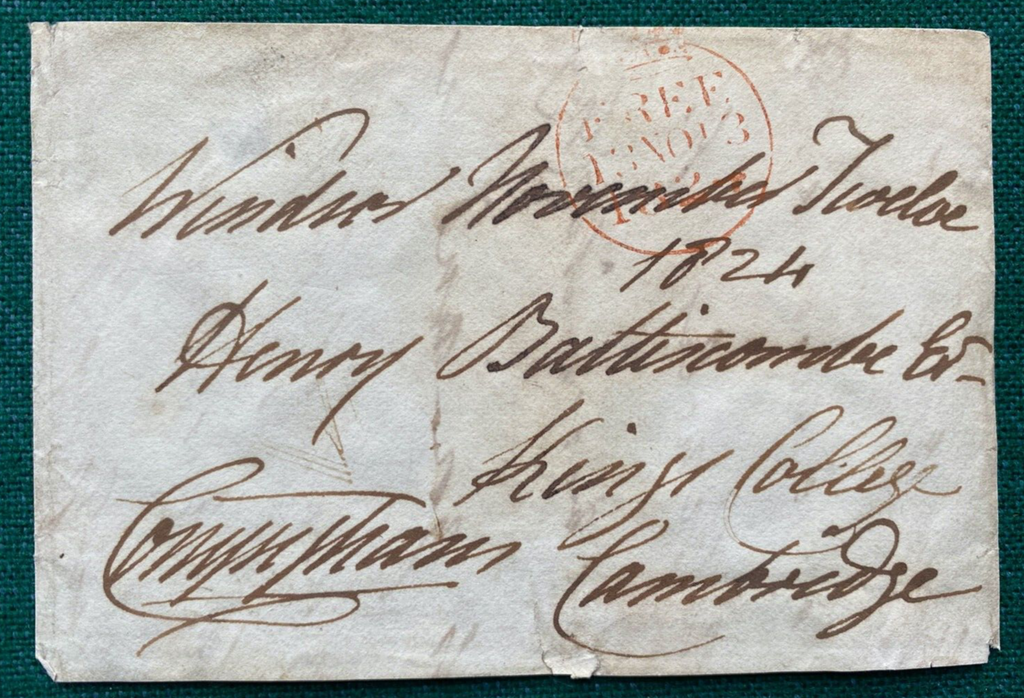 FREE
13 NO 13
1824
Windsor November Twelve
1824
Henry Battiscombe Esr
Kings College
Conyngham Cambridge